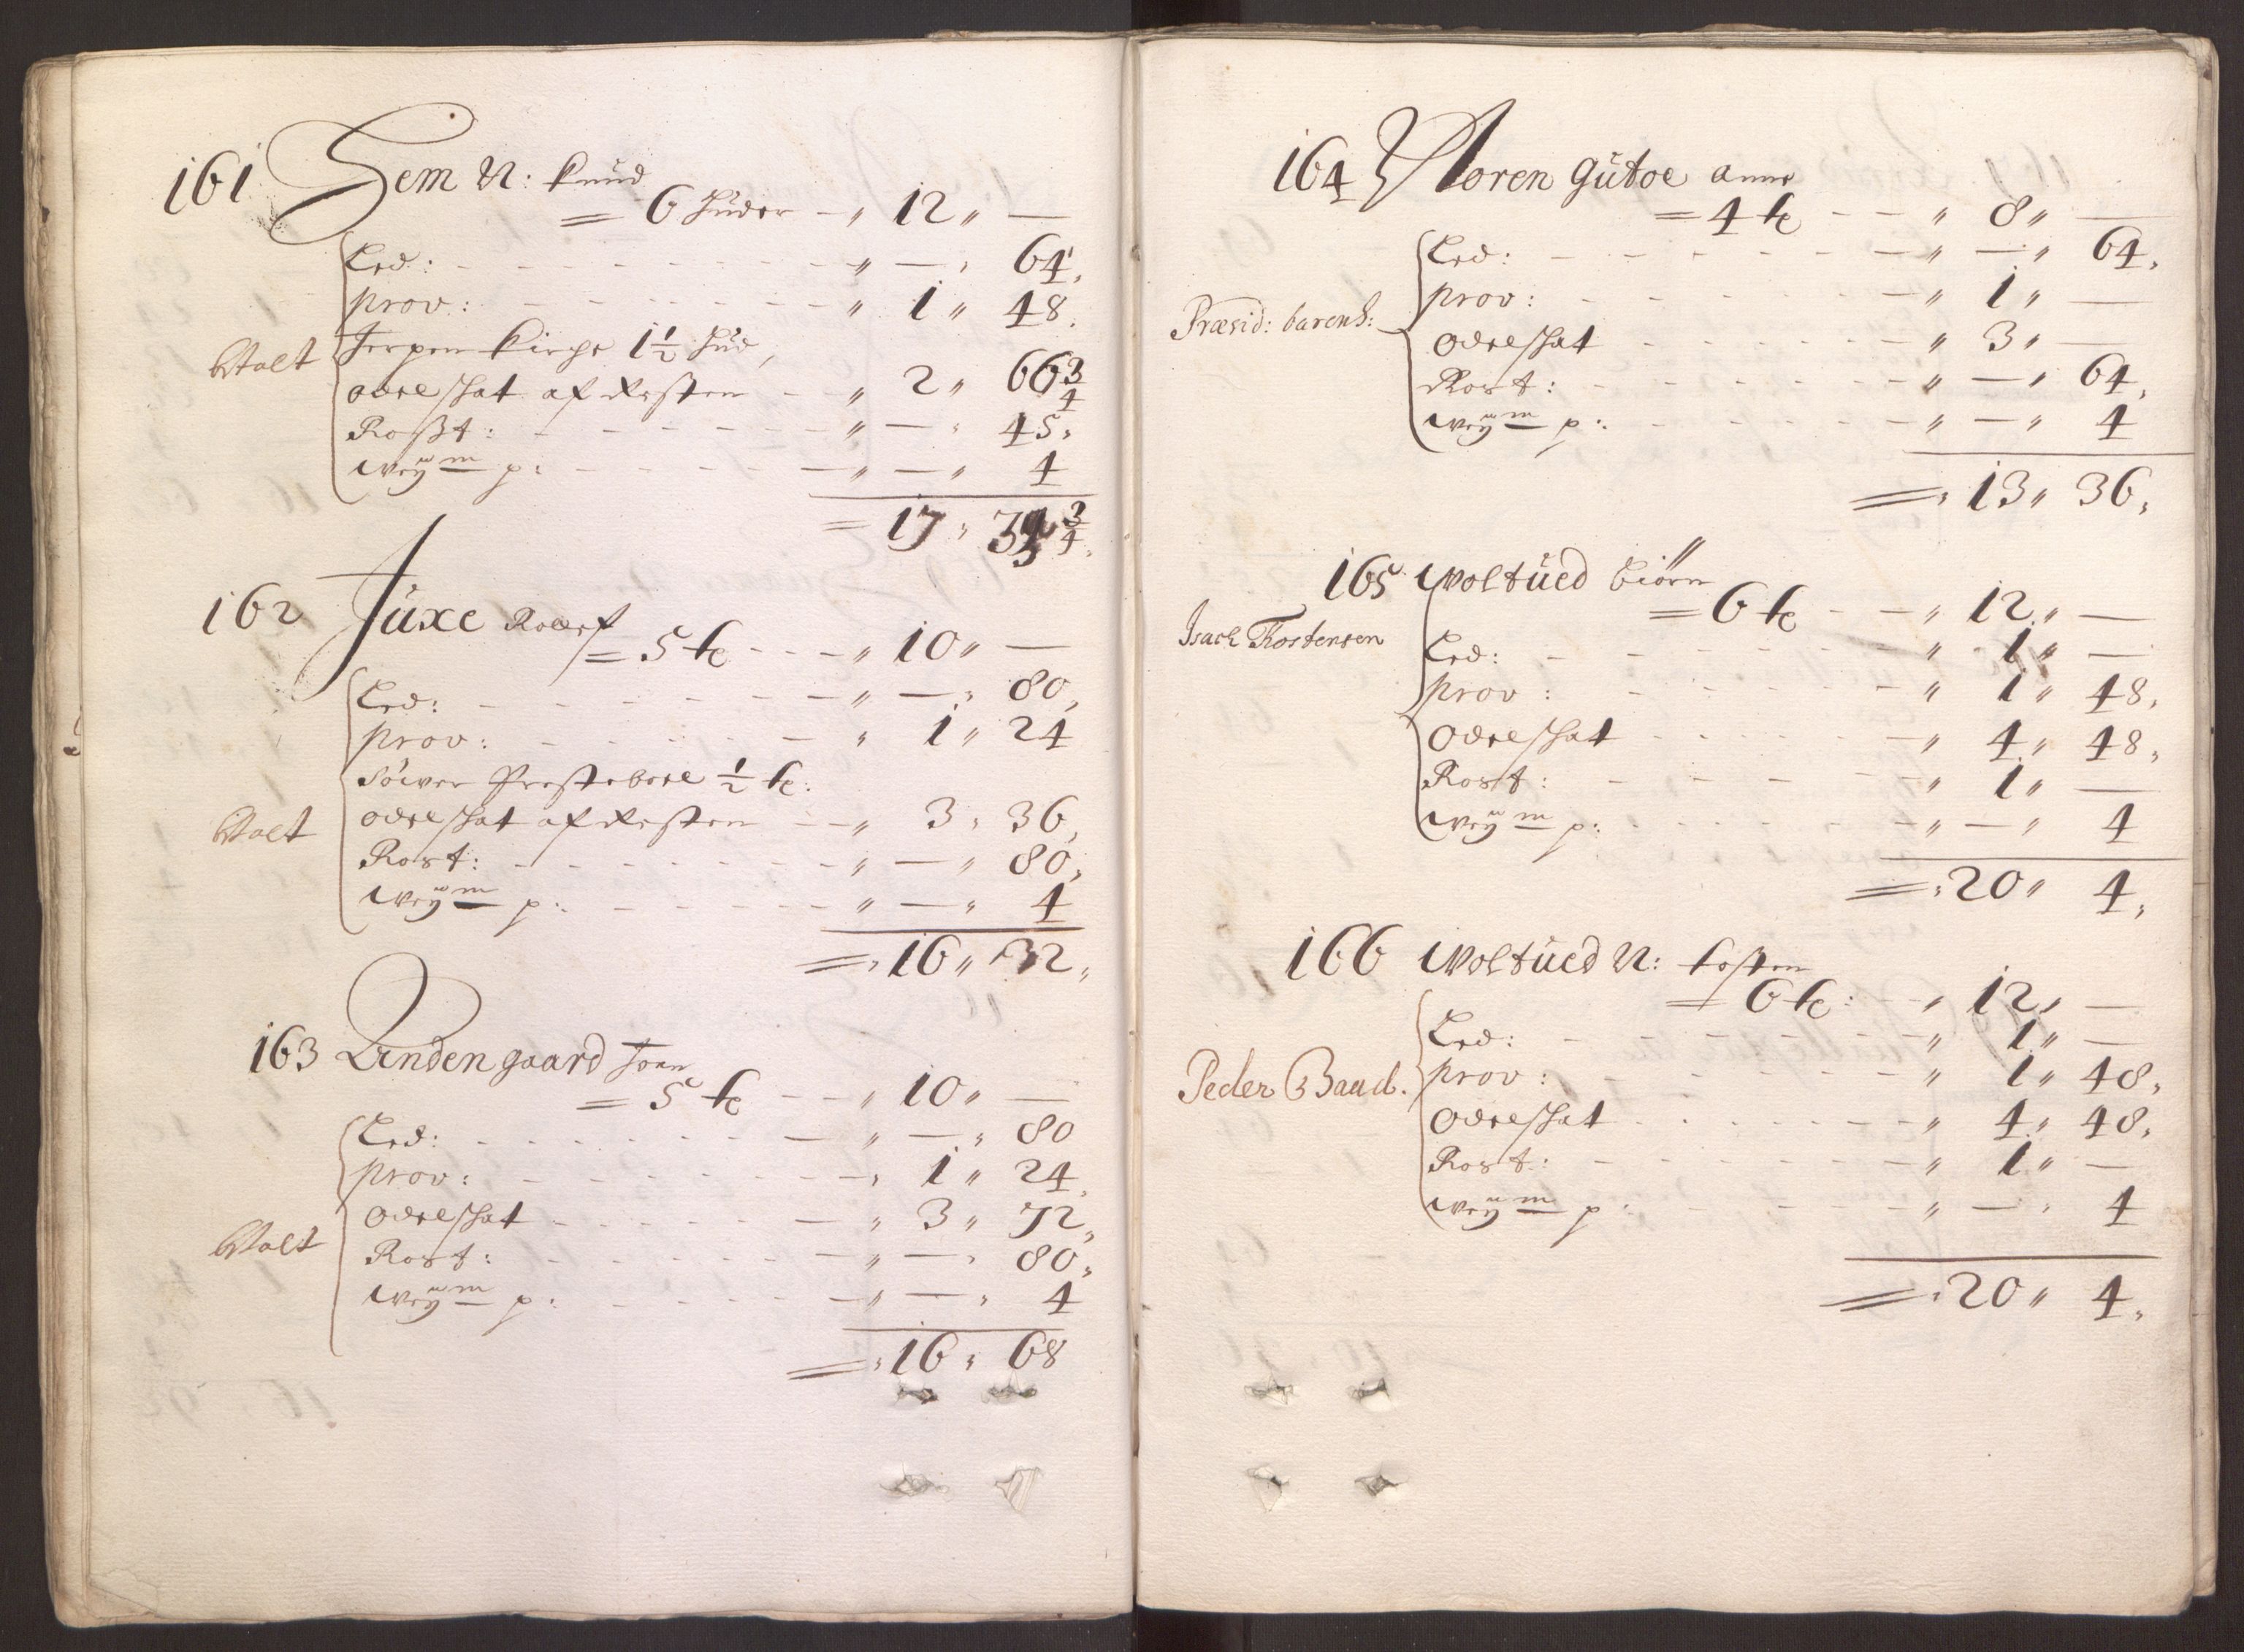 161 Sem N: Knud
= 6 Huder - " 12 " —
Led: - - - " — " 64,
prov: - - - " 1 " 48.
Jerpen Kirche 1½ Hud,
Valt
odelschat af Resten - " 2 " 66¾
Roßt: - - - " — " 45,
weÿm p: - - - " — " 4
= 17 " ¾
162 Juxe Rolef
= 5 ℔ - - - " 10 " —
Led: - - - " — " 80,
prov: - - - " 1 " 24
Söwer Prestebole ½ ℔:
Valt
odelschat af Resten - " 3 " 36,
Rost: - - - " — " 80,
weÿm p: - - - " — " 4
= " 16 " 32,
163 Lundengaard Joen
= 5 ℔ - - " 10 " —
Led: - - - " — " 80
prov: - - - " 1 " 24,
Odelschat - - - " 3 " 72,
Valt
Rost: - - - " — " 80,
weÿm p: - - - " — " 4
= " 16 " 68
164 Horen gutoe anne
= 4 ℔ - - " 8 " —
Led: - - - " — " 64,
Præsid: barenh:
prov: - - - " 1 " —
Odelschat - - - " 3 " —
Rost: - - - " — " 64,
weÿm p: - - - " — " 4
= " 13 " 36,
165 Woltued biörn
= 6 ℔ - - " 12 " —
Isach Tostensen
Led: - - - " 1 " —
prov: - - - " 1 " 48,
Odelschat - - - " 4 " 48,
Rost: - - - " 1 " —
weÿm p: - - - " — " 4
= " 20 " 4,
166 Woltued N: tosten
= 6 ℔: - - " 12 " —
Led: - - - " 1 " —
Peder Baad.
prov: - - - " 1 " 48,
Odelschat - - - " 4 " 48,
Rost: - - - " 1 " —
weÿm p: - - - " — " 4
= " 20 " 4,